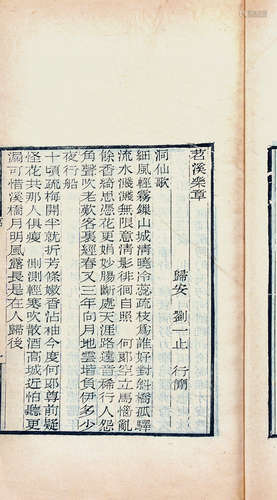 苕溪樂章
歸安 劉一止 行簡
洞仙歌
細風輕霧鎖山城清曉冷蕊疏枝爲誰好對斜橋孤驛
流水濺濺無限意清影徘徊自照 何郎空立馬惱亂
餘香綺思憑花更娟妙腸斷處天涯路遠音稀行人怨
角聲吹老歎客裏經春又三年向月地雲堦負伊多少
夜行船
十頃疏梅開半就折芳條嫩香沾袖今度何郎尊前疑
怪花共那人俱瘦 惻惻輕寒吹散酒高城近怕聽更
漏可惜溪橋月明風露長是在人歸後